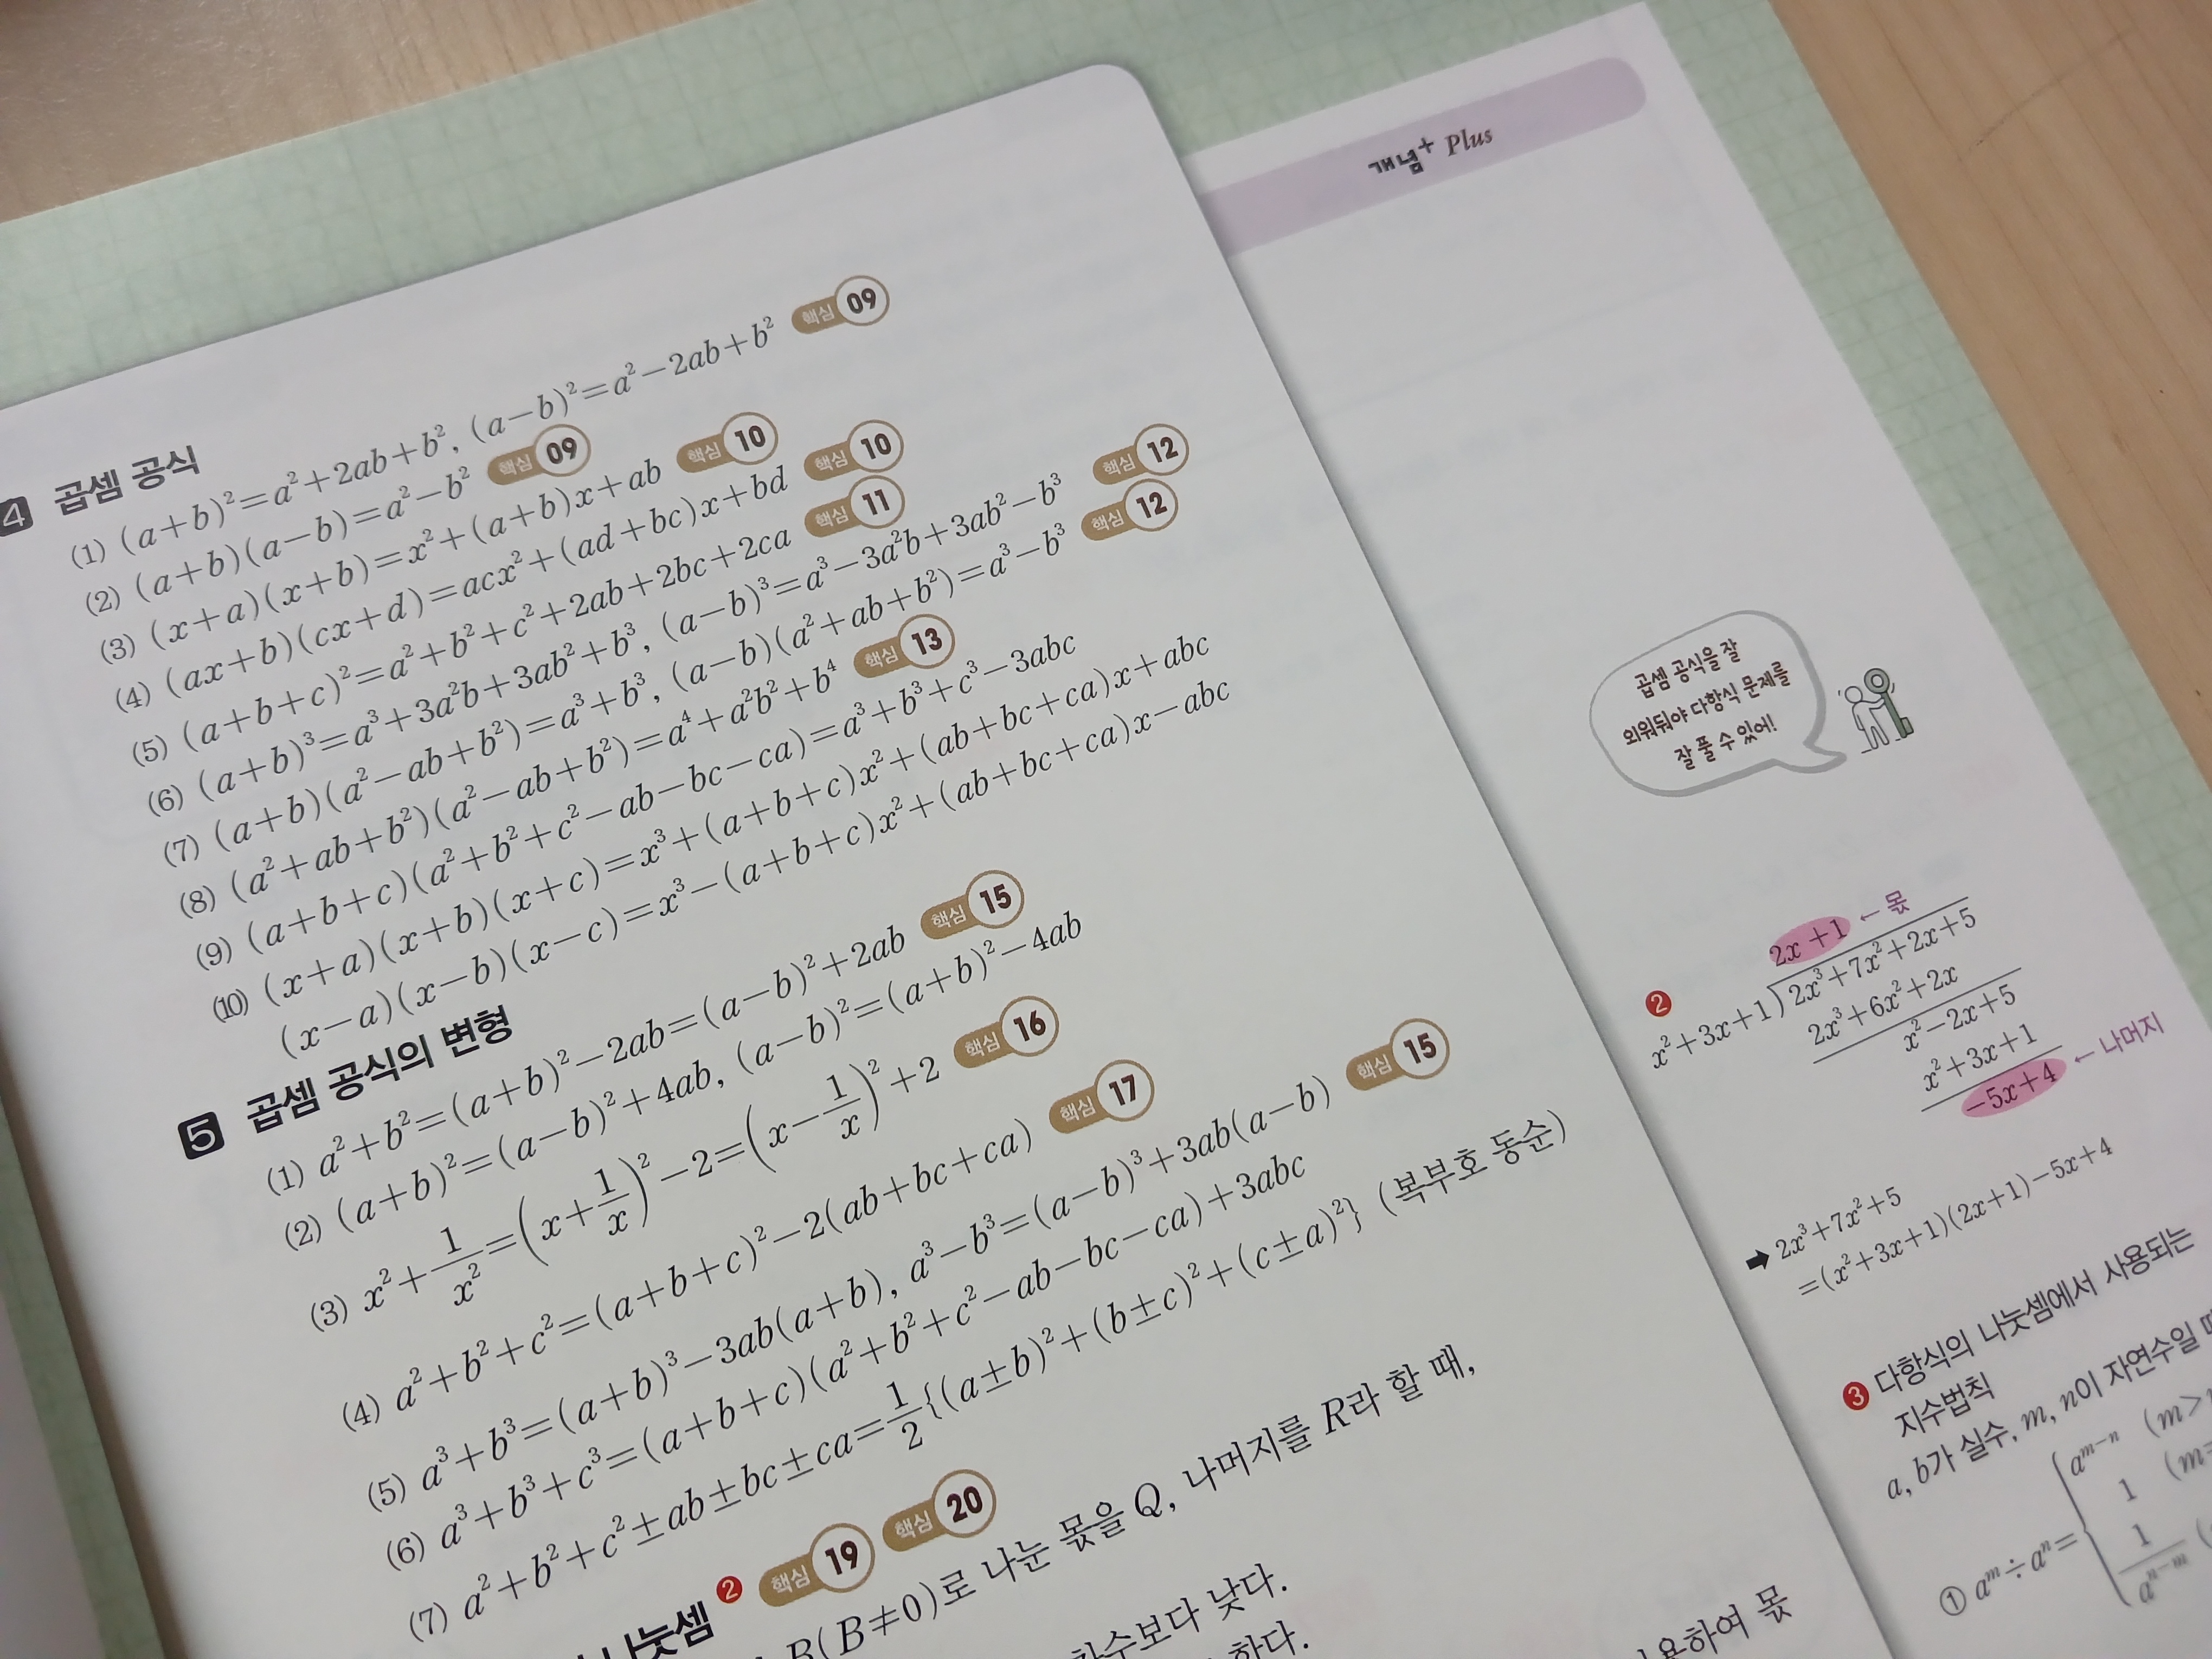 4 곱셈 공식
(1) (a+b)²=a²+2ab+b², (a−b)²=a²−2ab+b² 핵심 09
(2) (a+b)(a−b)=a²−b² 핵심 09
(3) (x+a)(x+b)=x²+(a+b)x+ab 핵심 10
(4) (ax+b)(cx+d)=acx²+(ad+bc)x+bd 핵심 10
(5) (a+b+c)²=a²+b²+c²+2ab+2bc+2ca 핵심 11
(6) (a+b)³=a³+3a²b+3ab²+b³, (a−b)³=a³−3a²b+3ab²−b³ 핵심 12
(7) (a+b)(a²−ab+b²)=a³+b³, (a−b)(a²+ab+b²)=a³−b³ 핵심 12
(8) (a²+ab+b²)(a²−ab+b²)=a⁴+a²b²+b⁴ 핵심 13
(9) (a+b+c)(a²+b²+c²−ab−bc−ca)=a³+b³+c³−3abc
(10) (x+a)(x+b)(x+c)=x³+(a+b+c)x²+(ab+bc+ca)x+abc
(x−a)(x−b)(x−c)=x³−(a+b+c)x²+(ab+bc+ca)x−abc
5 곱셈 공식의 변형
(1) a²+b²=(a+b)²−2ab=(a−b)²+2ab 핵심 15
(2) (a+b)²=(a−b)²+4ab, (a−b)²=(a+b)²−4ab
(3) x²+1/x²=(x+1/x)²−2=(x−1/x)²+2 핵심 16
(4) a²+b²+c²=(a+b+c)²−2(ab+bc+ca) 핵심 17
(5) a³+b³=(a+b)³−3ab(a+b), a³−b³=(a−b)³+3ab(a−b) 핵심 15
(6) a³+b³+c³=(a+b+c)(a²+b²+c²−ab−bc−ca)+3abc
(7) a²+b²+c²±ab±bc±ca=1/2{(a±b)²+(b±c)²+(c±a)²} (복부호 동순)
나눗셈 2 핵심 19 핵심 20
B(B≠0)로 나눈 몫을 Q, 나머지를 R라 할 때,
차수보다 낮다.
하다.
개념+ Plus
곱셈 공식을 잘
외워둬야 다항식 문제를
잘 풀 수 있어!
2
2x+1 ← 몫
x²+3x+1)2x³+7x²+2x+5
2x³+6x²+2x
x²−2x+5
x²+3x+1
−5x+4 ← 나머지
➡ 2x³+7x²+5
=(x²+3x+1)(2x+1)−5x+4
3 다항식의 나눗셈에서 사용되는
지수법칙
a, b가 실수, m, n이 자연수일
① aᵐ÷aⁿ={
aᵐ⁻ⁿ (m>
1 (m=
1/aⁿ⁻ᵐ (
용하여 몫